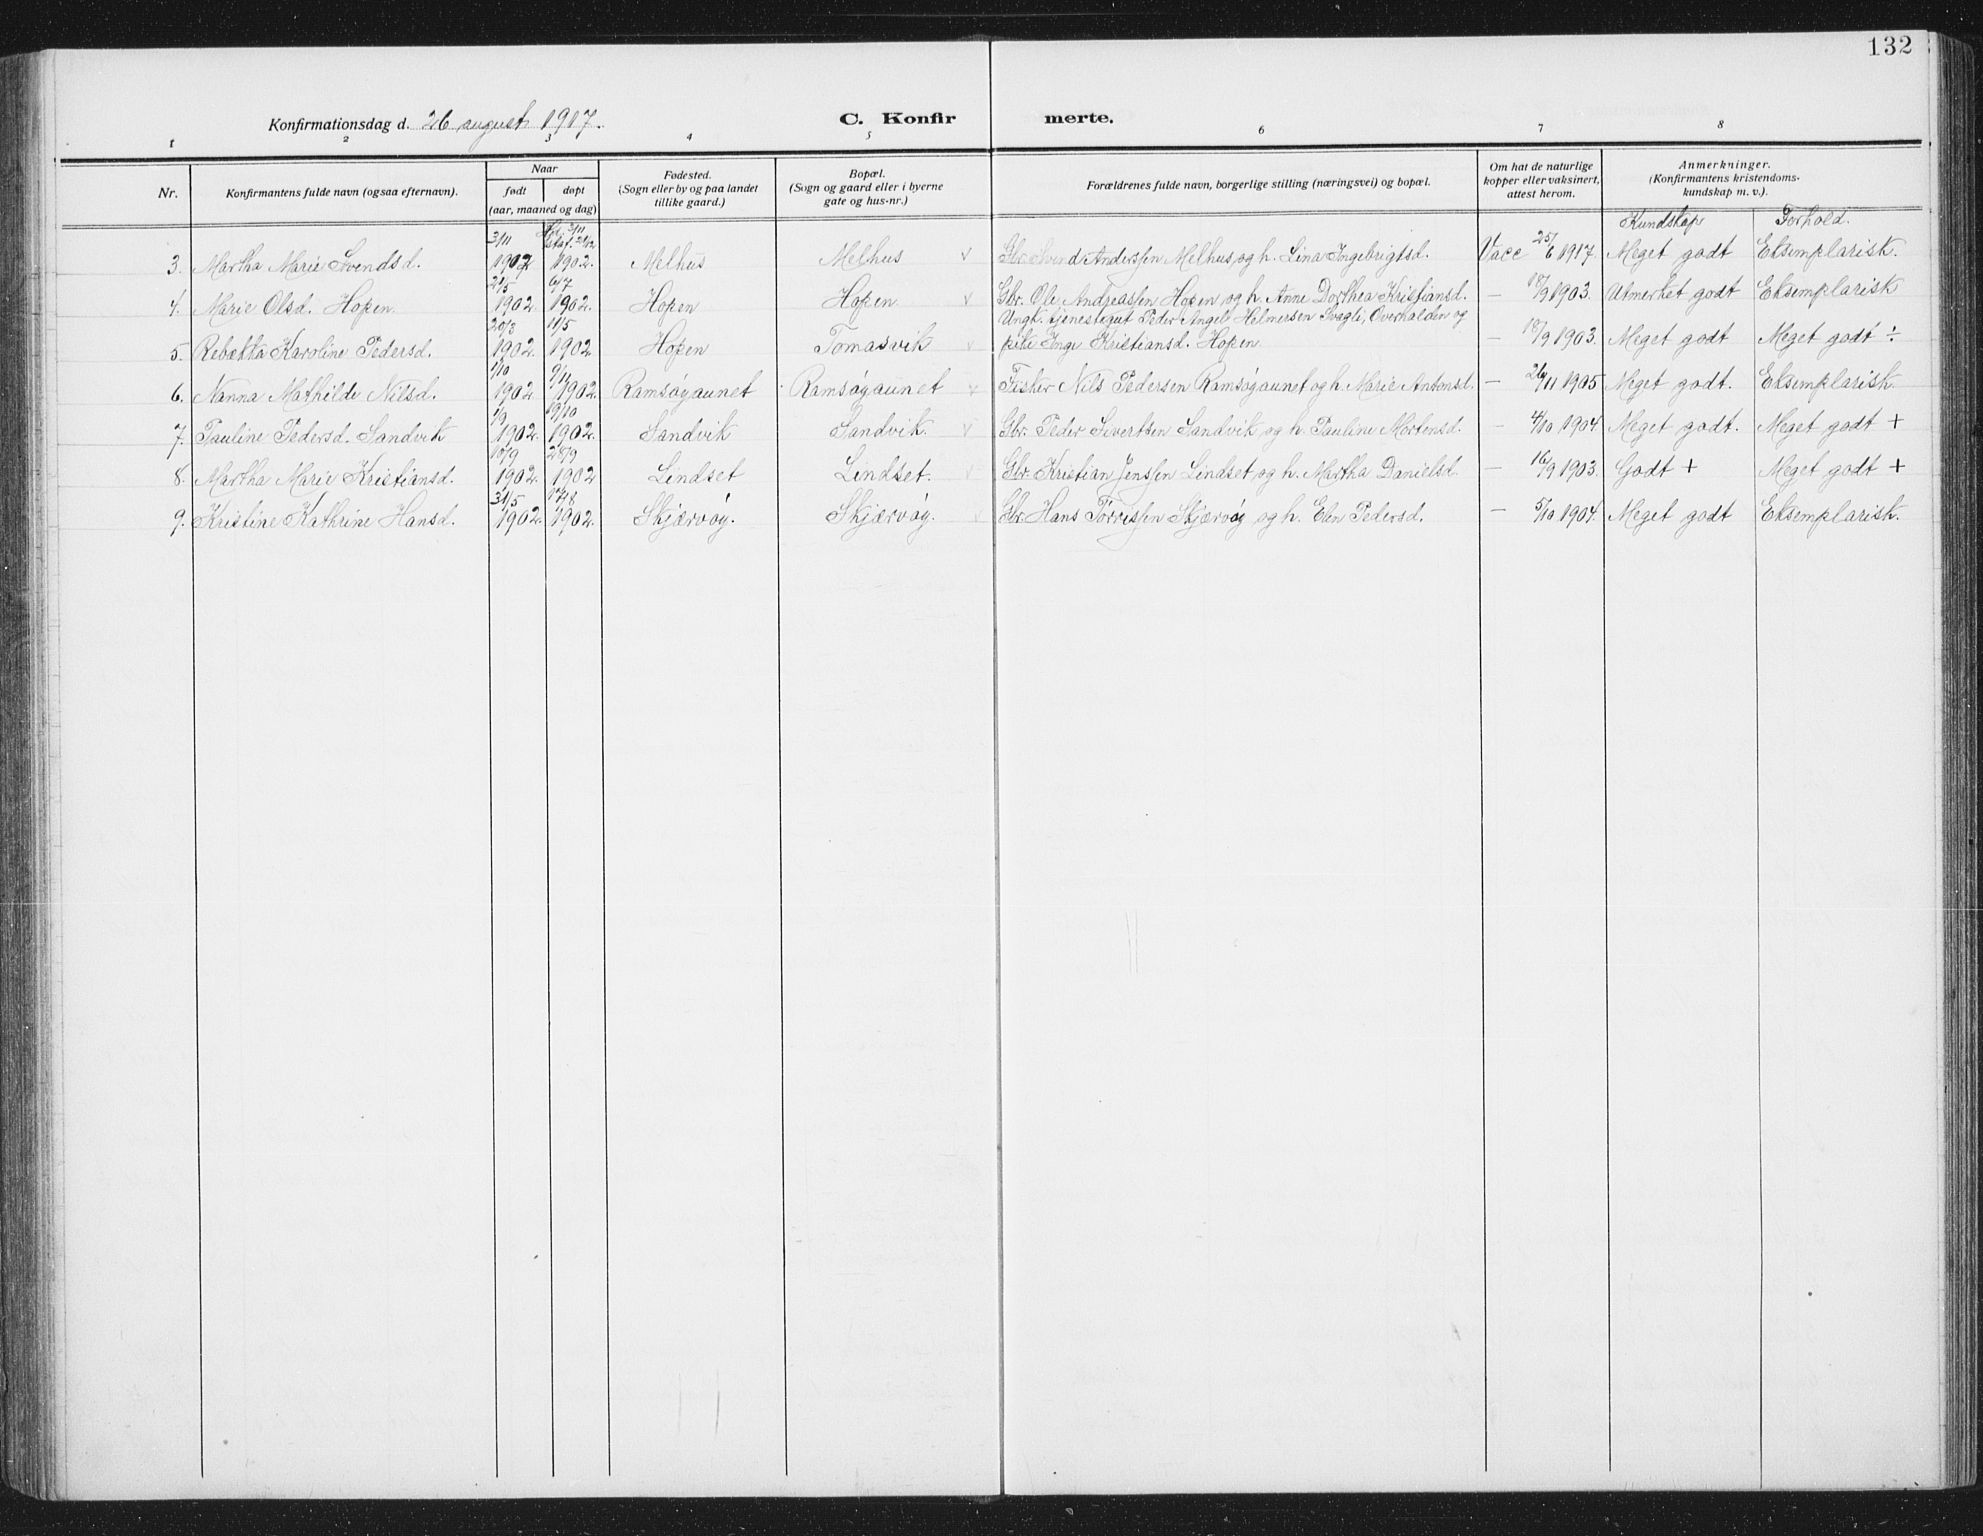 132
Konfirmationsdag d. 26 august 1917.
C. Konfirmerte.
1 2 3 4 5 6 7 8
Nr. Konfirmantens fulde navn (ogsaa efternavn). Naar født døpt (aar, maaned og dag) Fødested. (Sogn eller by og paa landet tillike gaard.) Bopæl. (Sogn og gaard eller i byerne gate og hus-nr.) Forældrenes fulde navn, borgerlige stilling (næringsvei) og bopæl. Om hat de naturlige kopper eller vaksinert, attest herom. Anmerkninger. (Konfirmantens kristendoms-kundskap m. v.).
Kundskap Forhold.
3. Martha Marie Svendsd. 3/11 1902 3/11 stat. 21/12 1902. Melhus Melhus v Gbr. Svend Anderssen Melhus og h. Lina Ingebrigtsd. Vacc 25/6 1917. Meget godt Eksemplarisk.
4. Marie Olsd. Hopen 21/5 1902. 6/7 1902. Hopen Hopen v Gbr. Ole Andreassen Hopen og h. Anne Dorthea Kristiansd. — 18/9 1903. Utmerket godt Eksemplarisk
5. Rebekka Karoline Pedersd. 20/3 1902. 11/5 1902 Hopen Tomasvik v Ungk. tjenestegut Peder Angel Helmersen Svagli, Overhalden og
pike Inge Kristiansd. Hopen — 18/9 1903. Meget godt Meget godt ÷
6. Nanna Mathilde Nilsd. 1/10 1902. 9/11 1902. Ramsøgaunet Ramsøgaunet v Fisker Nils Pedersen Ramsøgaunet og h. Marie Antonsd. — 26/11 1905 Meget godt. Eksemplarisk
7. Pauline Pedersd. Sandvik 1/9 1902. 19/10 1902. Sandvik Sandvik. v Gbr. Peder Sivertsen Sandvik og h. Pauline Mortensd. — 4/10 1904. Meget godt. Meget godt +
8. Martha Marie Kristiansd. 10/9 1902. 28/9 1902 Lindset Lindset. v Gbr. Kristian Jenssen Lindset og h. Martha Danielsd. — 16/9 1903. Godt + Meget godt +
9. Kristine Kathrine Hansd. 31/5 1902. 17/8 1902. Skjærvøy. Skjærvøy. v Gbr. Hans Torrissen Skjærvøy og h. Elen Pedersd. — 5/10 1904. Meget godt Eksemplarisk.